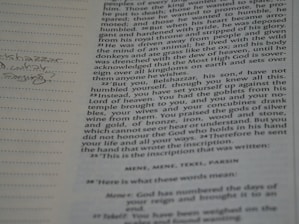 peoples of every
him. Those the king wanted to
he put to death; those he wanted to
spared; those he wanted to promote, he pro-
moted; and
gant and hardened with pride, he was deposed
from his royal throne and stripped of his glory.
21 He was driven away from people and given
the mind of an animal; he lived with the wild
donkeys and ate grass like the ox; and his body
was drenched with the dew of heaven, until he
acknowledged that the Most High God is sover-
eign over all kingdoms on earth and sets over
them anyone he wishes.
22 "But you, Belshazzar, his son, have not
humbled yourself, though you knew all this.
23 Instead, you have set yourself up against the
Lord of heaven. You had the goblets from his
temple brought to you, and you and your no-
bles, your wives and your concubines drank
wine from them. You praised the gods of silver
and gold, of bronze, iron, wood and stone,
which cannot see or hear or understand. But you
did not honour the God who holds in his hand
your life and all your ways. 24 Therefore he sent
the hand that wrote the inscription.
25 "This is the inscription that was written:
MENE, MENE, TEKEL, PARSIN
26 "Here is what these words mean:
Mene: God has numbered the days
of your reign and brought it to an
end.
27 Tekel: You have been weighed on the
scales and found wanting.